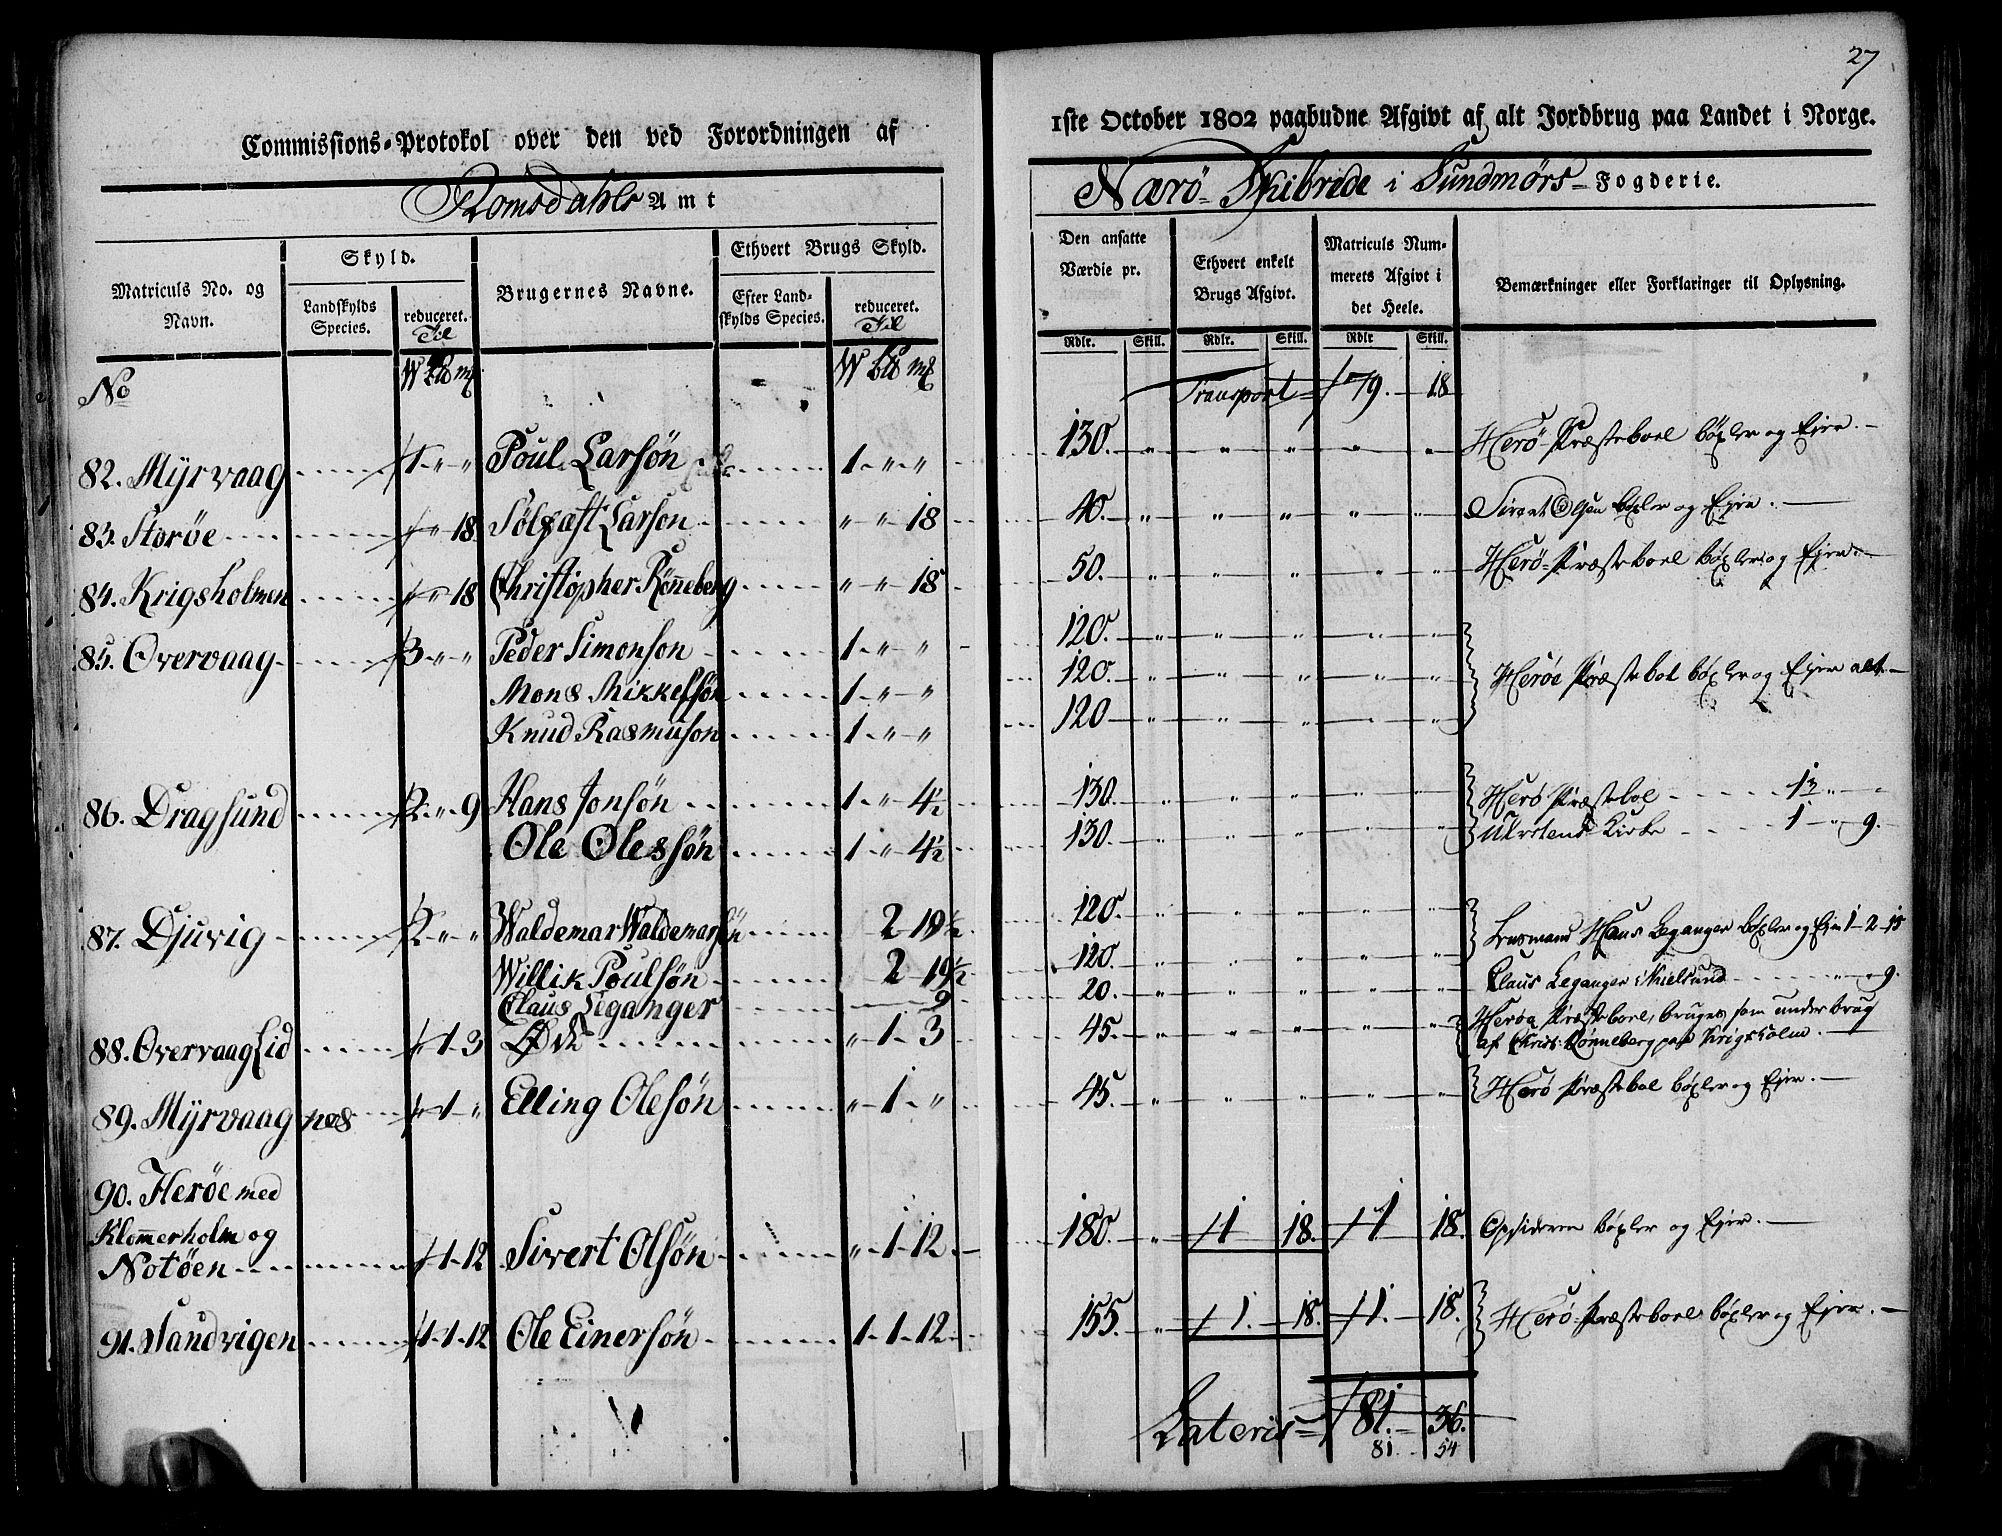 27
Commissions-Protokol over den ved Forordningen af 1ste October 1802 paabudne Afgivt af alt Jordbrug paa Landet i Norge.
Romsdahls Amt
Nærø Skibrede i Sundmørs Fogderie.
Matriculs No. og Navn.
Skyld.
Landskylds Species.
reduceret.
Til
Brugernes Navne.
Ethvert Brugs Skyld.
Efter Landskylds Species.
reduceret.
Til
Den ansatte Værdie pr.
Ethvert enkelt Brugs Afgivt.
Matriculs Nummerets Afgivt i det Heele.
Bemærkninger eller Forklaringer til Oplysning.
Rdlr. Skill. Rdlr. Skill. Rdlr Skill.
No
Transport 79. 18
82. Myrvaag 1 - " " Poul Larsøn 1 - " - " 130. Herø Præsteboel bøxler og Ejer.
83. Storøe " " 18 Sølfæst Larson " " 18 40. Sivert Olsen bøxler og Ejer.
84. Krigsholmen " " 18 Christopher Rønneberg " " 18 50. Herø Præsteboel bøxler og Ejer.
85. Overvaag 3 - " " Peder Simonson 1 - " - " 120.
Mons Mikkelsøn 1 - " - " 120. Herøe Præstebol bøxler og Ejer alt
Knud Rasmuson 1 - " - " 120
86. Dragsund 2 - " - 9 Hans Jonsøn 1 - " 4½ 130. Herø Præstebol 1
Ole Olessøn 1 " 4½ 130. Ulvstens Kirke 1 - " 9.
87. Djuvig 2 - " - " Waldemar Waldemarsøn 2 19½ 120. Lensmand Hans Leganger bøxler og Ejer 1 - 2 - 15
Willik Poulsøn 2 - 19½ 120.
Claus Leganger 9 20. Claus Leganger i " 9.
88. Overvaaglid " 1 - 3 Øde " 1 - 3 45. Herøe Præsteboel, bruges som underbrug
af Christ: Rønneberg paa Krigsholm.
89. Myrvaagnes " 1 - " Elling Olesøn " - 1 - " 45. Herø Præstebol bøxler og Ejer.
90. Herøe med
Klommerholm og
Notøen 1 - 12 Sivert Olsøn " - 1 - 12 180. 1 18. 1 18. Opsideren bøxler og Ejer.
91. Sandvigen 1 - 1 - 12 Ole Einersøn 1 - 1 - 12 155. 1. 18. 1. 18. Herø Præsteboel bøxler og Ejer.
Lateris 81. 36.
81. 54